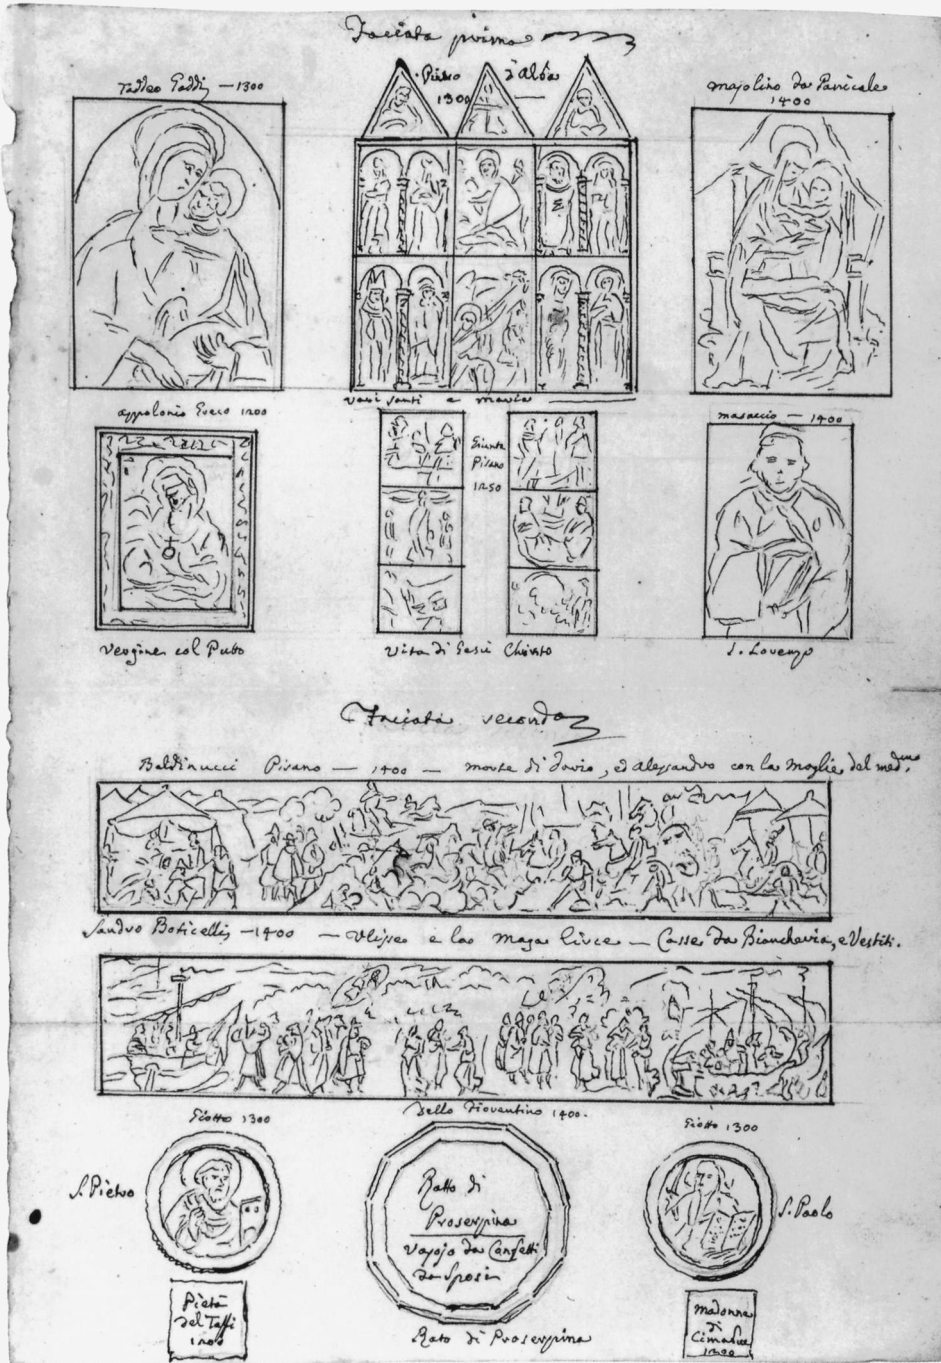 Facciata prima
Taddeo Gaddi — 1300
Pietro d'Alba
1300
Masolino da Panicale
1400
Varj Santi e Maria
appolonio Greco 1200
Giunta
Pisano
1250
Masaccio — 1400
Vergine col Putto
Vita di Gesù Christo
S. Lorenzo
Facciata seconda
Baldinucci Pisano — 1400 — Morte di Dario, ed Alessandro con la Moglie del medmo.
Sandro Boticelli — 1400 — Ulisse e la Maga Circe — Casse da Biancheria, e Vestiti.
Giotto 1300
Dello Fiorentino 1400.
Giotto 1300
S. Pietro
Ratto di
Proserpina
Vasojo da Confetti
da Sposi
S. Paolo
Pietà
del Taffi
1200
Rato di Proserpina
Madonna
di
Cimabue
1200